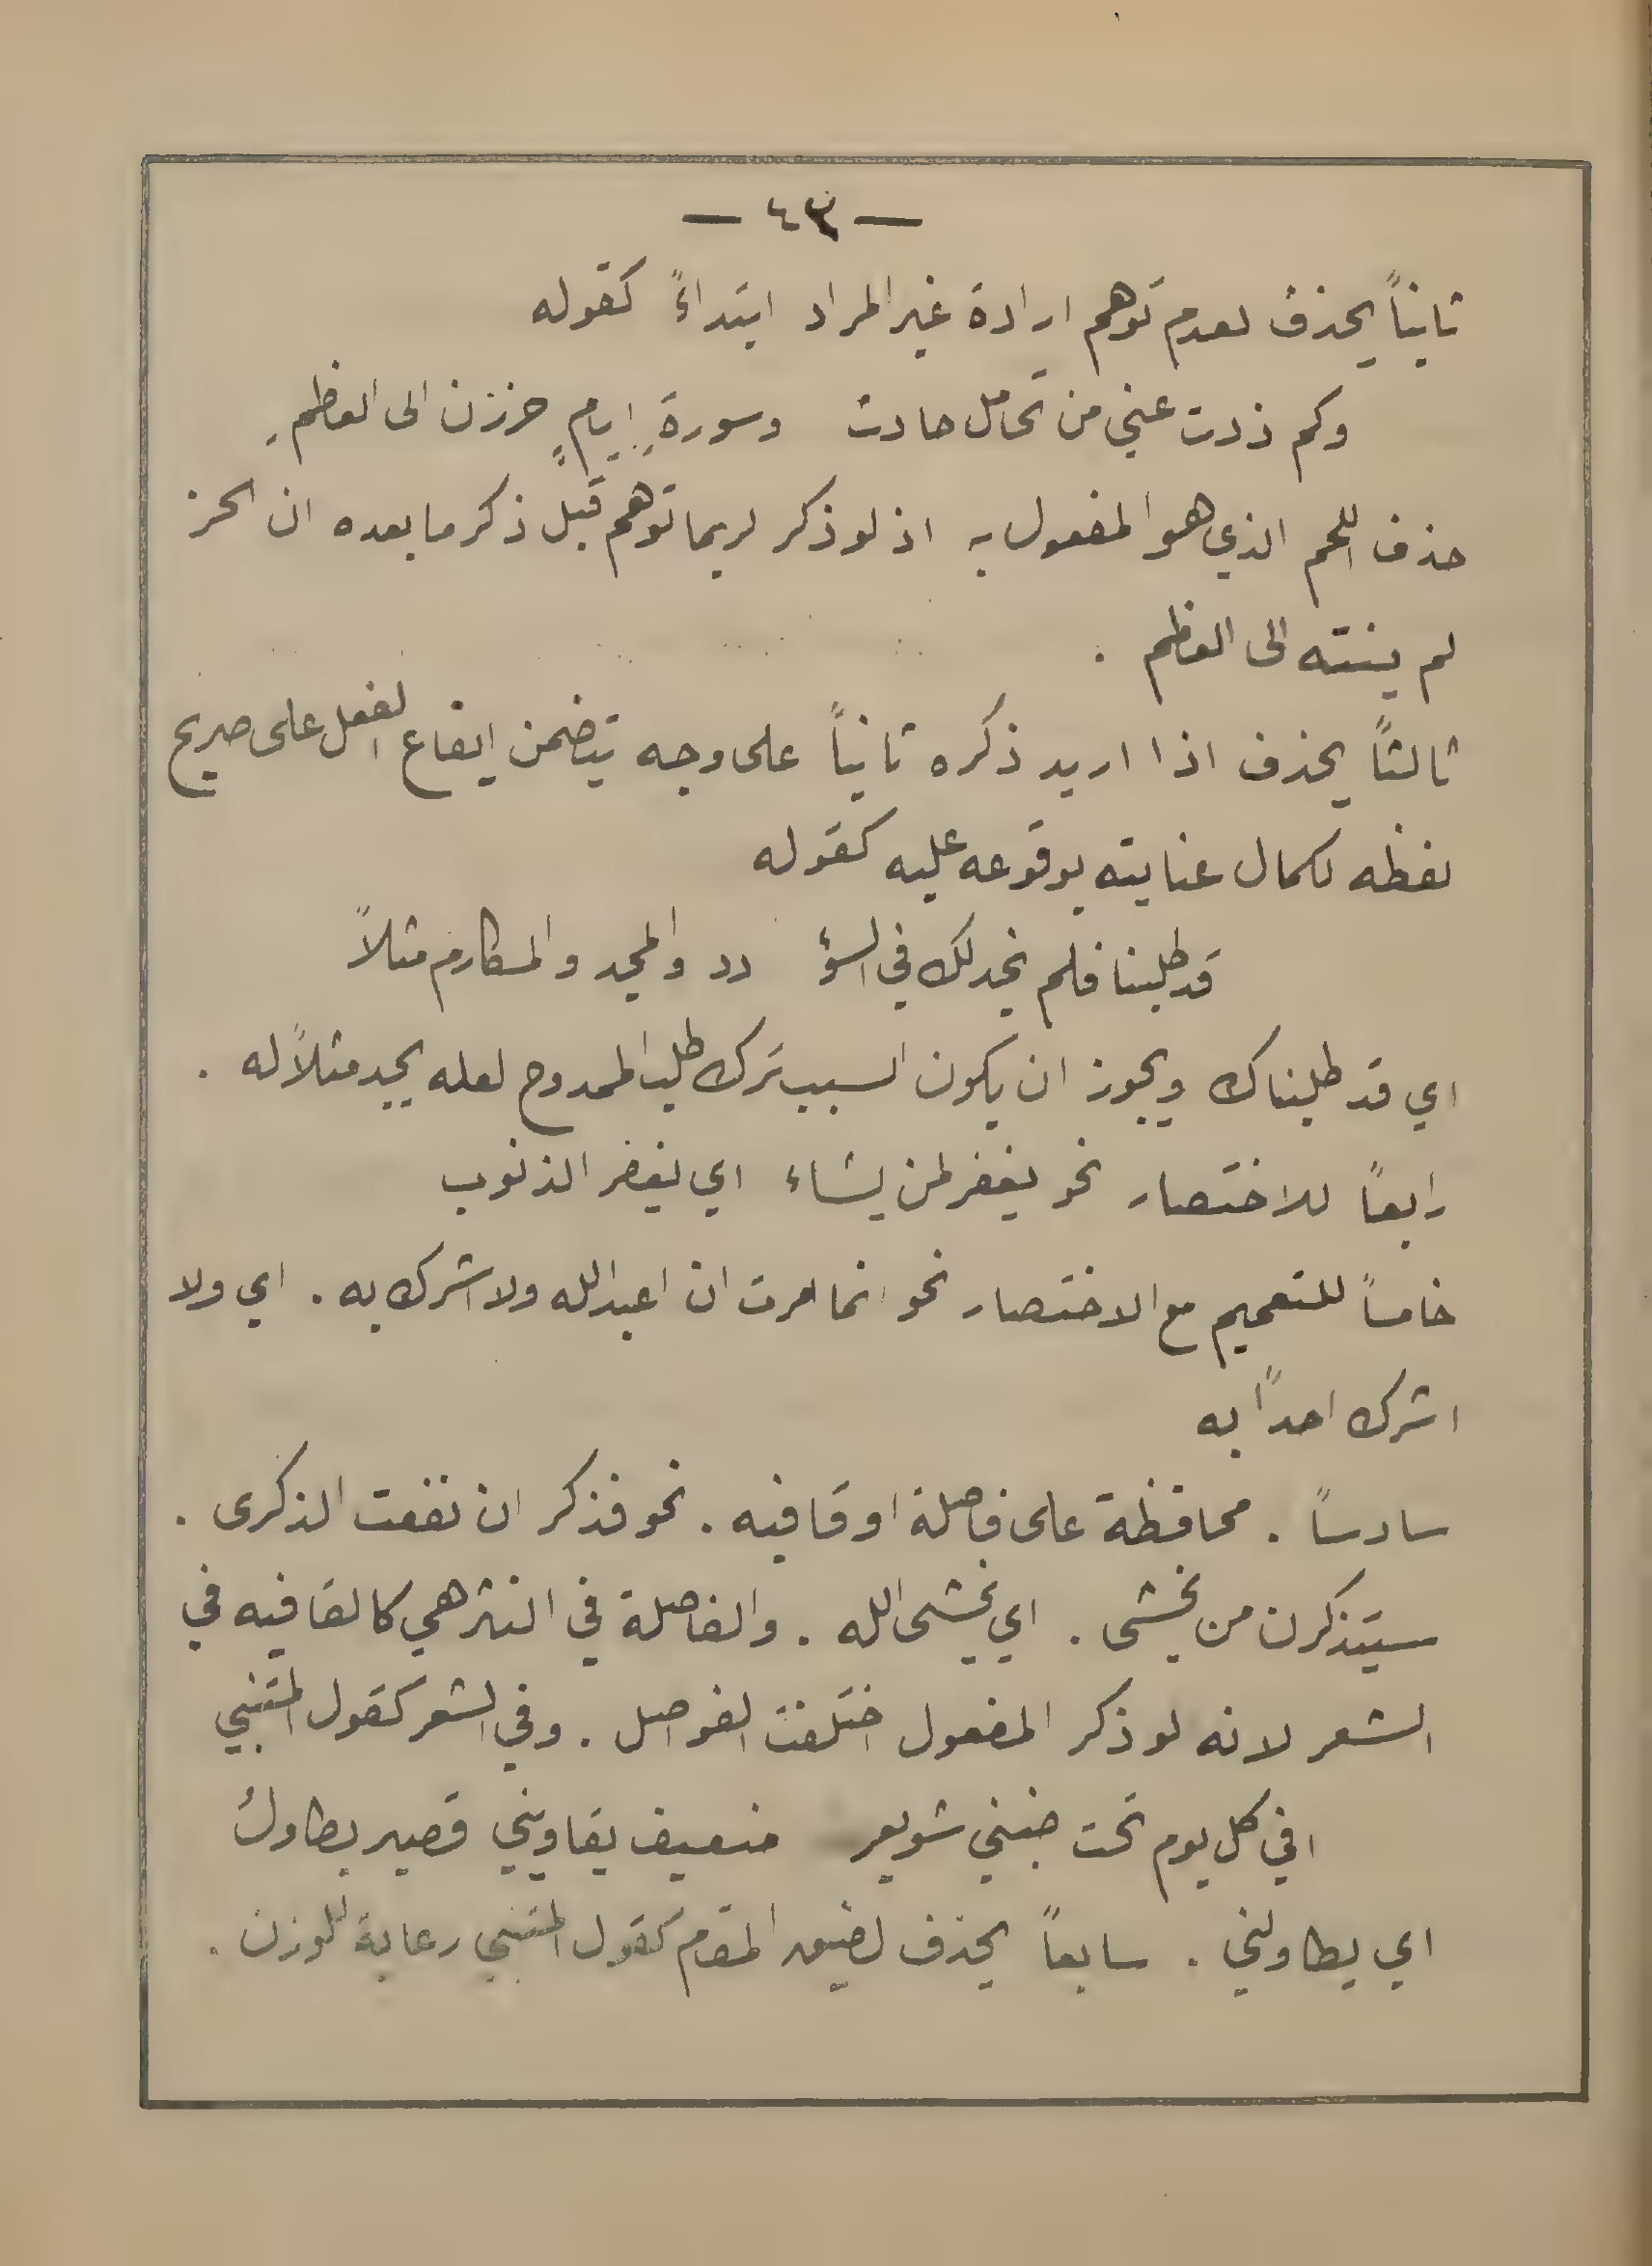 — ٤٣ —
ثانياً يحذف لعدم توهم ارادة غير المراد ابتداءً كقوله
وكم ذدت عني من تحامل حادث وسورةِ ايامٍ حززن الى العظمِ
حذف اللحم الذي هو المفعول به اذ لو ذكر لربما توهم قبل ذكر ما بعده ان الحز
لم ينته الى العظم .
ثالثاً يحذف اذا اريد ذكره ثانياً على وجه يتضمن ايقاع الفعل على صريح
لفظه لكمال عنايته بوقوعه عليه كقوله
قد طلبنا فلم نجد لك في السؤ دد والمجد والمكارم مثلاً
اي قد طلبناك ويجوز ان يكون السبب ترك طلب الممدوح لعله يجد مثلاً له .
رابعاً للاختصار نحو يغفر لمن يشاء اي يغفر الذنوب
خامساً للتعميم مع الاختصار نحو انما امرت ان اعبد الله ولا اشرك به . اي ولا
اشرك احداً به
سادساً . محافظة على فاصلة او قافيه . نحو فذكر ان نفعت الذكرى .
سيتذكرن من يخشى . اي يخشى الله . والفاصلة في النثر هي كالقافيه في
الشعر لانه لو ذكر المفعول اختلفت الفواصل . وفي الشعر كقول المتنبي
افي كل يوم تحت ضبني شويعر ضعيف يقاويني قصير يطاولُ
اي يطاولني . سابعاً يحذف لضيق المقام كقول المتنبي رعاية للوزن .